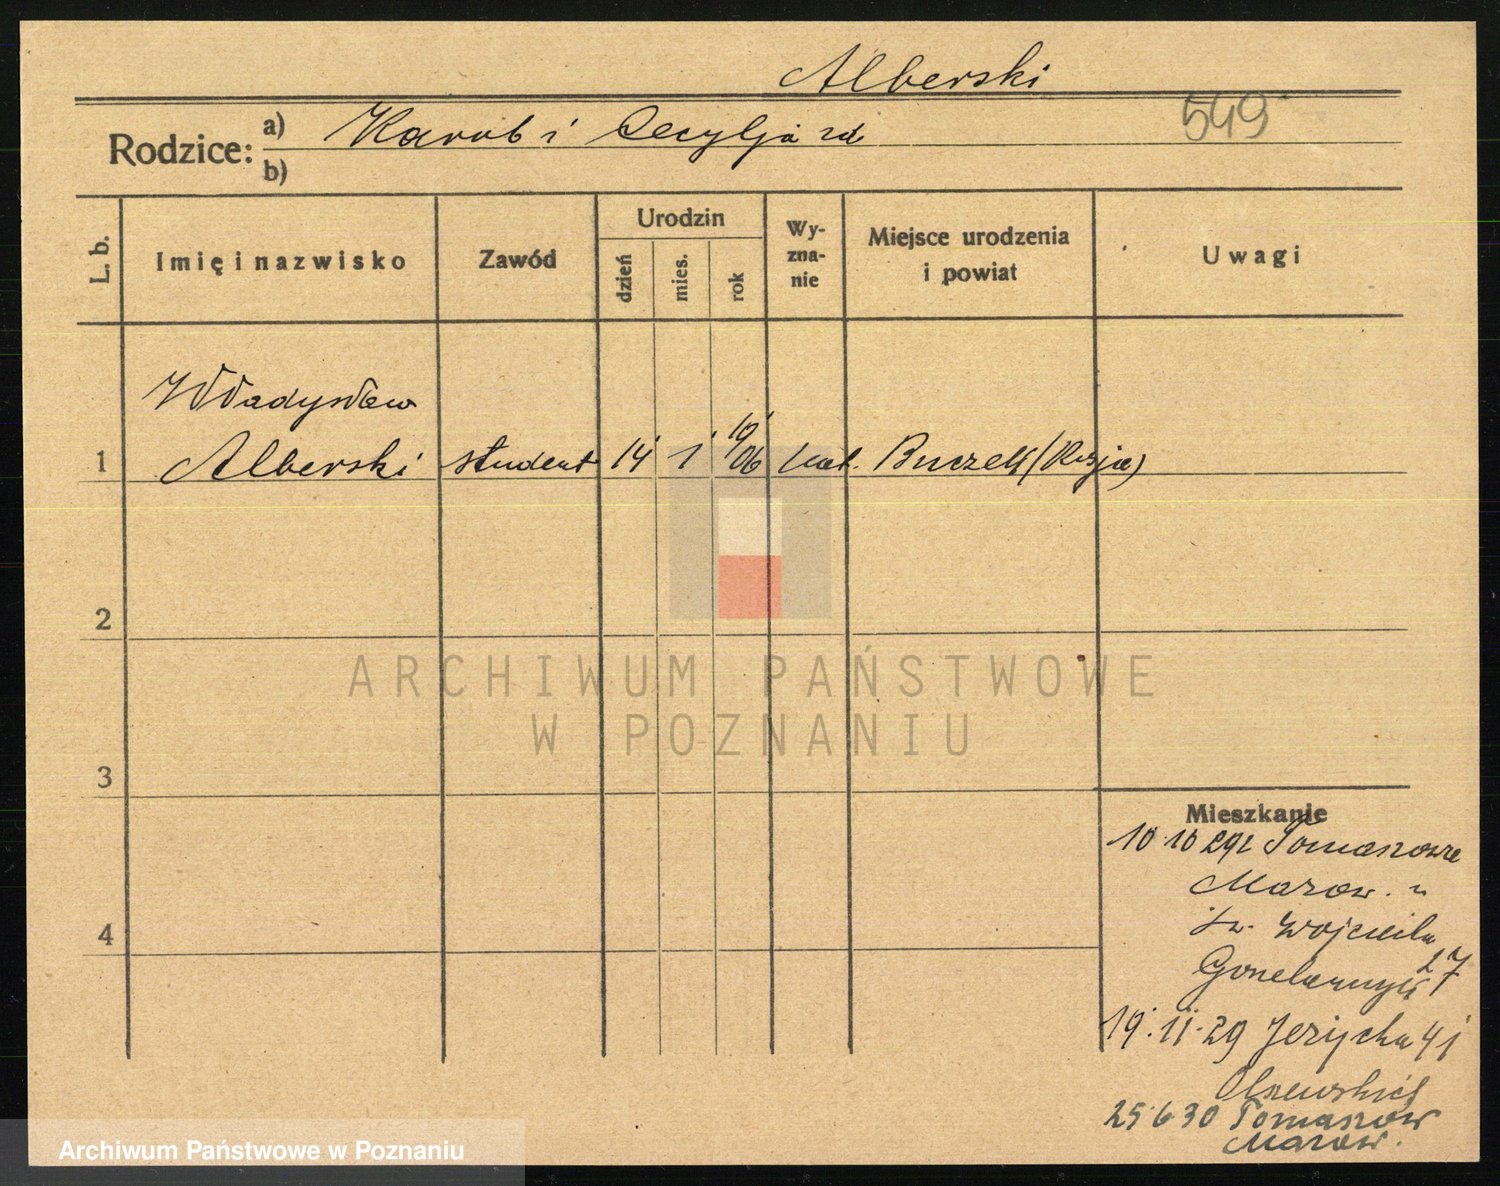 Alberski
549
Rodzice: a) Karol i Cecylja zd
b)
L. b. Imię i nazwisko Zawód Urodzin dzień mies. rok Wy-zna-nie Miejsce urodzenia i powiat Uwagi
Władysław
1 Alberski student 14 1 1906 kat. (Rosja)
2
ARCHIWUM PAŃSTWOWE
W POZNANIU
3
4
Mieszkanie
10 10 29 z Tomaszowa
Mazow. u
św. Wojciecha
27
19.11.29 Jeżycka 41
Olszewskich
25 6 30 Tomaszów
Mazow.
Archiwum Państwowe w Poznaniu